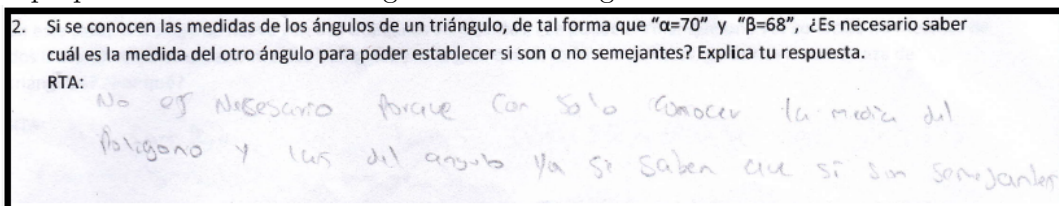 2. Si se conocen las medidas de los ángulos de un triángulo, de tal forma que "α=70" y "β=68", ¿Es necesario saber
cuál es la medida del otro ángulo para poder establecer si son o no semejantes? Explica tu respuesta.
RTA:
No es Nesesario Porque Con Solo Conocer la media del
Poligono y las del angulo Ya se saben que si son semejantes